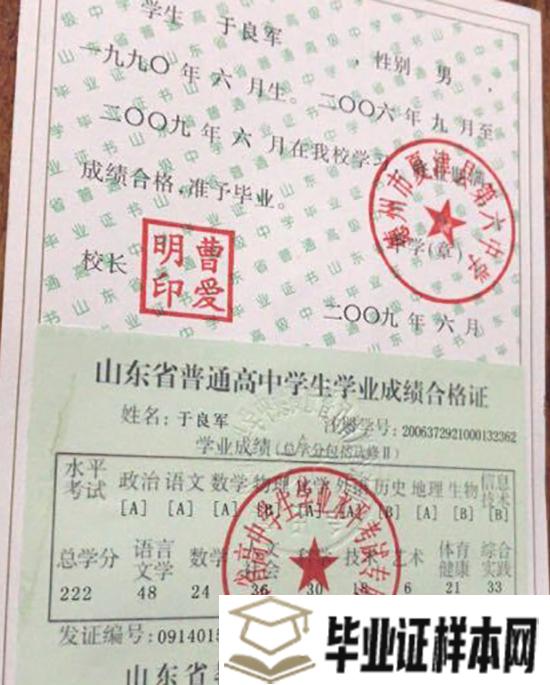 学生 于良军 ，性别 男 ，
一九九〇 年 六 月生。二〇〇六 年 九 月至
二〇〇九 年 六 月在我校学习
成绩合格，准予毕业。
德州市夏津县第六中学
中学(章)
校长
曹爱明印
二〇〇九 年 六 月
山东省普通高中学生学业成绩合格证
姓名：于良军 注册学号：2006372921000132362
学业成绩(总学分包括选修Ⅱ)
水平考试 政治 语文 数学 物理 化学 外语 历史 地理 生物 信息技术
[A] [A] [A] [B] [A] [B] [A] [B] [B]
总学分 语言文学 数学 技术 艺术 体育健康 综合实践
222 48 24 36 30 18 6 21 33
发证编号：0914015
山东省普
毕业证样本网